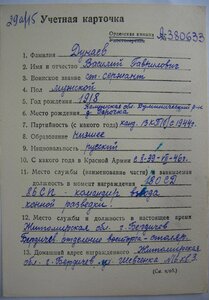 29а/15 Учетная карточка
Орденская книжка
Удостоверение № 380633
1. Фамилия Дунаев
2. Имя и отчество Василий Гаврилович
3. Воинское звание ст. сержант
4. Пол мужской
5. Год рождения 1918
6. Место рождения Калужская обл. Думиничский р-н
д.
7. Партийность (с какого года) канд. ВКП(б) с 1944 г.
8. Образование низшее
9. Национальность русский
10. С какого года в Красной Армии с
11. Место службы (наименование части) и занимаемая
должность в момент награждения 180 СД
86 СП - командир взвода
конной разведки.
12. Место службы и должность в настоящее время
Житомирская обл. г. Бердичев
Бердичев отделение - столяр.
13. Домашний адрес награжденного Житомирская
обл. г. Бердичев, ул. Шевченко № 6 кв. 3
(См. н/об.)